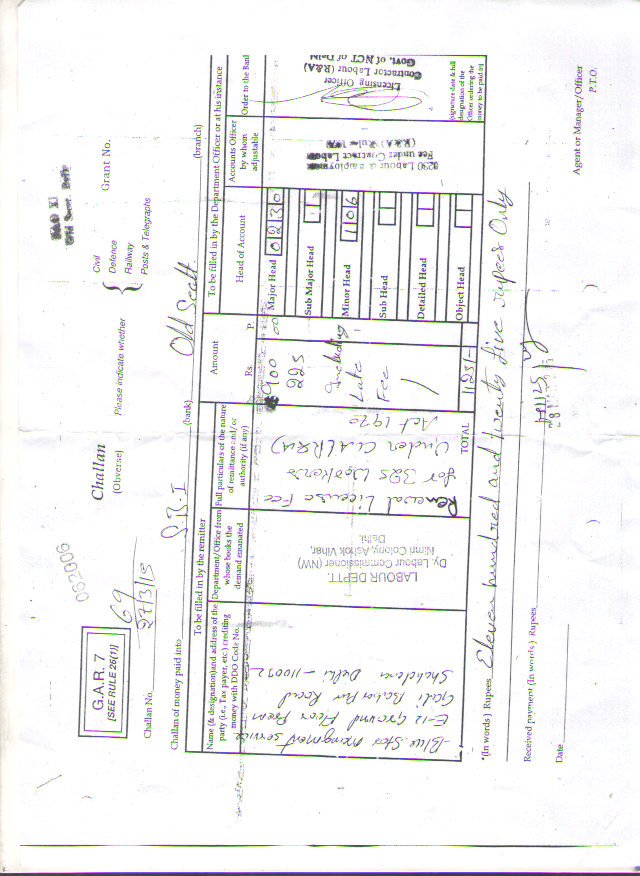 G.A.R. 7
[SEE RULE 26(1)]
062006
Challan
(Obverse)
Please indicate whether
Civil
Defence
Railway
Posts & Telegraphs
Grant No.
Challan No. 69
27/3/15
Challan of money paid into S.B.I (bank) Old Sectt. (branch)
To be filled in by the remitter
To be filled in by the Department Officer or at his instance
Name (& designation) and address of the party (i.e., Tax payer, etc.) crediting money with DDO Code No.
Department/Office from whose books the demand emanated
Full particulars of the nature of remittance and/or authority (if any)
Amount
Rs. P.
Head of Account
Accounts Officer by whom adjustable
Order to the Bank
Blue Star Management Service
E-12 Ground Floor
Gali Road
Shahdara Delhi - 110092
LABOUR DEPTT.
Dy. Labour Commissioner (NW)
Nimri Colony, Ashok Vihar,
Delhi.
Renewal License Fee
for 325 Workers
Under CLA (R&A)
Act 1970
900 00
225
Including
Late
Fee
Major Head 0230
Sub Major Head
Minor Head 106
Sub Head
Detailed Head
Object Head
0230 Labour & employment
Fee under Contract Labour
(R&A) Rules
Licensing Officer
Contractor Labour (R&A)
Govt. of NCT of Delhi
(signature date & full designation of the Officer ordering the money to be paid in)
TOTAL 1125/-
*(In words) Rupees Eleven hundred and twenty five rupees Only
Received payment (In words) Rupees
Date
Agent or Manager/Officer
P.T.O.